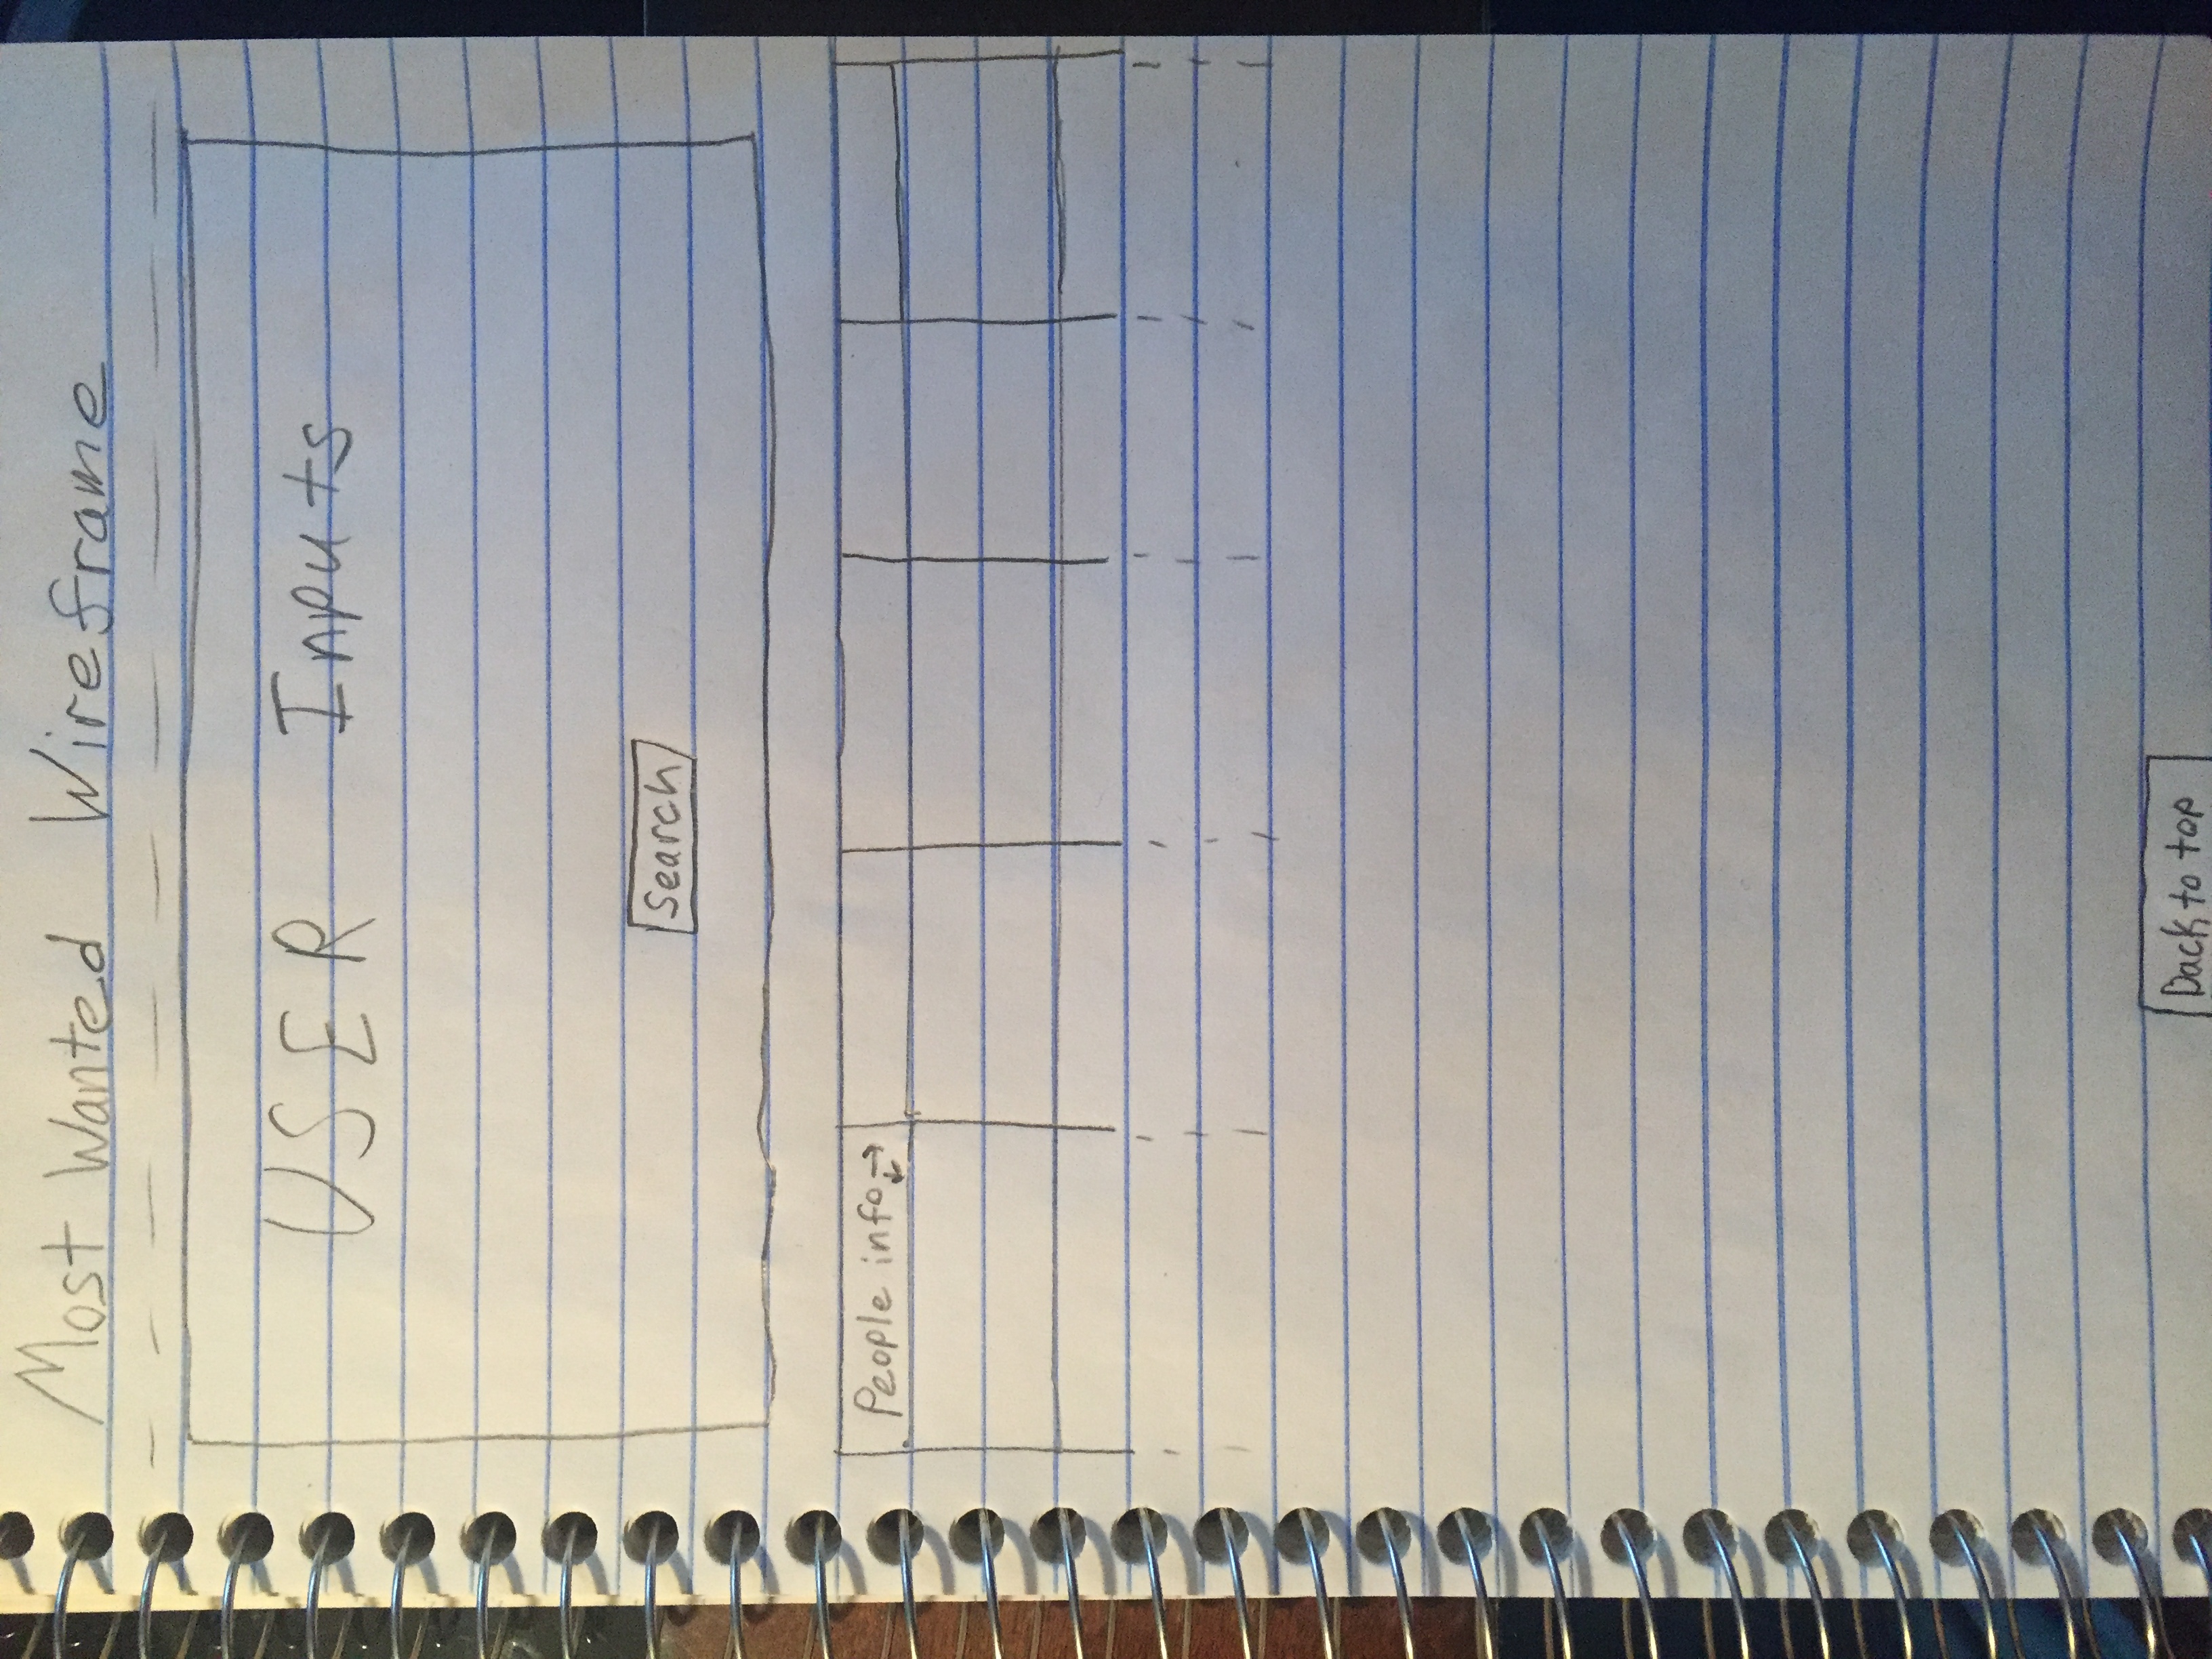 Most Wanted Wireframe
USER Inputs
Search
People info → ↓
Back to top